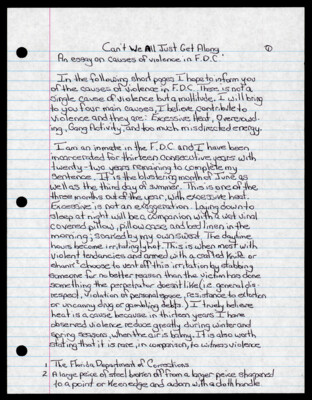 Can't We All Just Get Along
①
An essay on causes of violence in F.D.C.¹
In the following short pages I hope to inform you
of the causes of violence in F.D.C. There is not a
single cause of violence but a multitude. I will bring
to you four main causes, I believe contribute to
violence and they are: Excessive Heat, Overcrowd-
ing, Gang Activity, and too much misdirected energy.
I am an inmate in the F.D.C. and I have been
incarcerated for thirteen consecutive years with
twenty-two years remaining to complete my
sentence. It is the blustering month of June as
well as the third day of summer. This is one of the
three months out of the year, with excessive heat.
Excessive is not an exaggeration. Laying down to
sleep at night will be a companion with a wet vinal
covered pillow, pillow case and bed linen in the
morning; soaked by my own sweat. The daytime
hours become irritatingly hot. This is when most with
violent tendencies and armed with a called knife or
shank² choose to vent off this irritation by stabbing
someone for no better reason than the victim has done
something the perpetrator doesn't like (i.e. general dis-
respect, violation of personal space, resistance to extortion
or uncanny drug or gambling debts). I truely believe
heat is a cause because in thirteen years I have
observed violence reduce greatly during winter and
spring seasons, when the air is balmy. It is also worth
stating that it is rare, in comparison, to witness violence
1 The Florida Department of Corrections
2 A large peice of steel broken off from a larger peice sharpened
to a point or keen edge and adorn with a cloth handle.